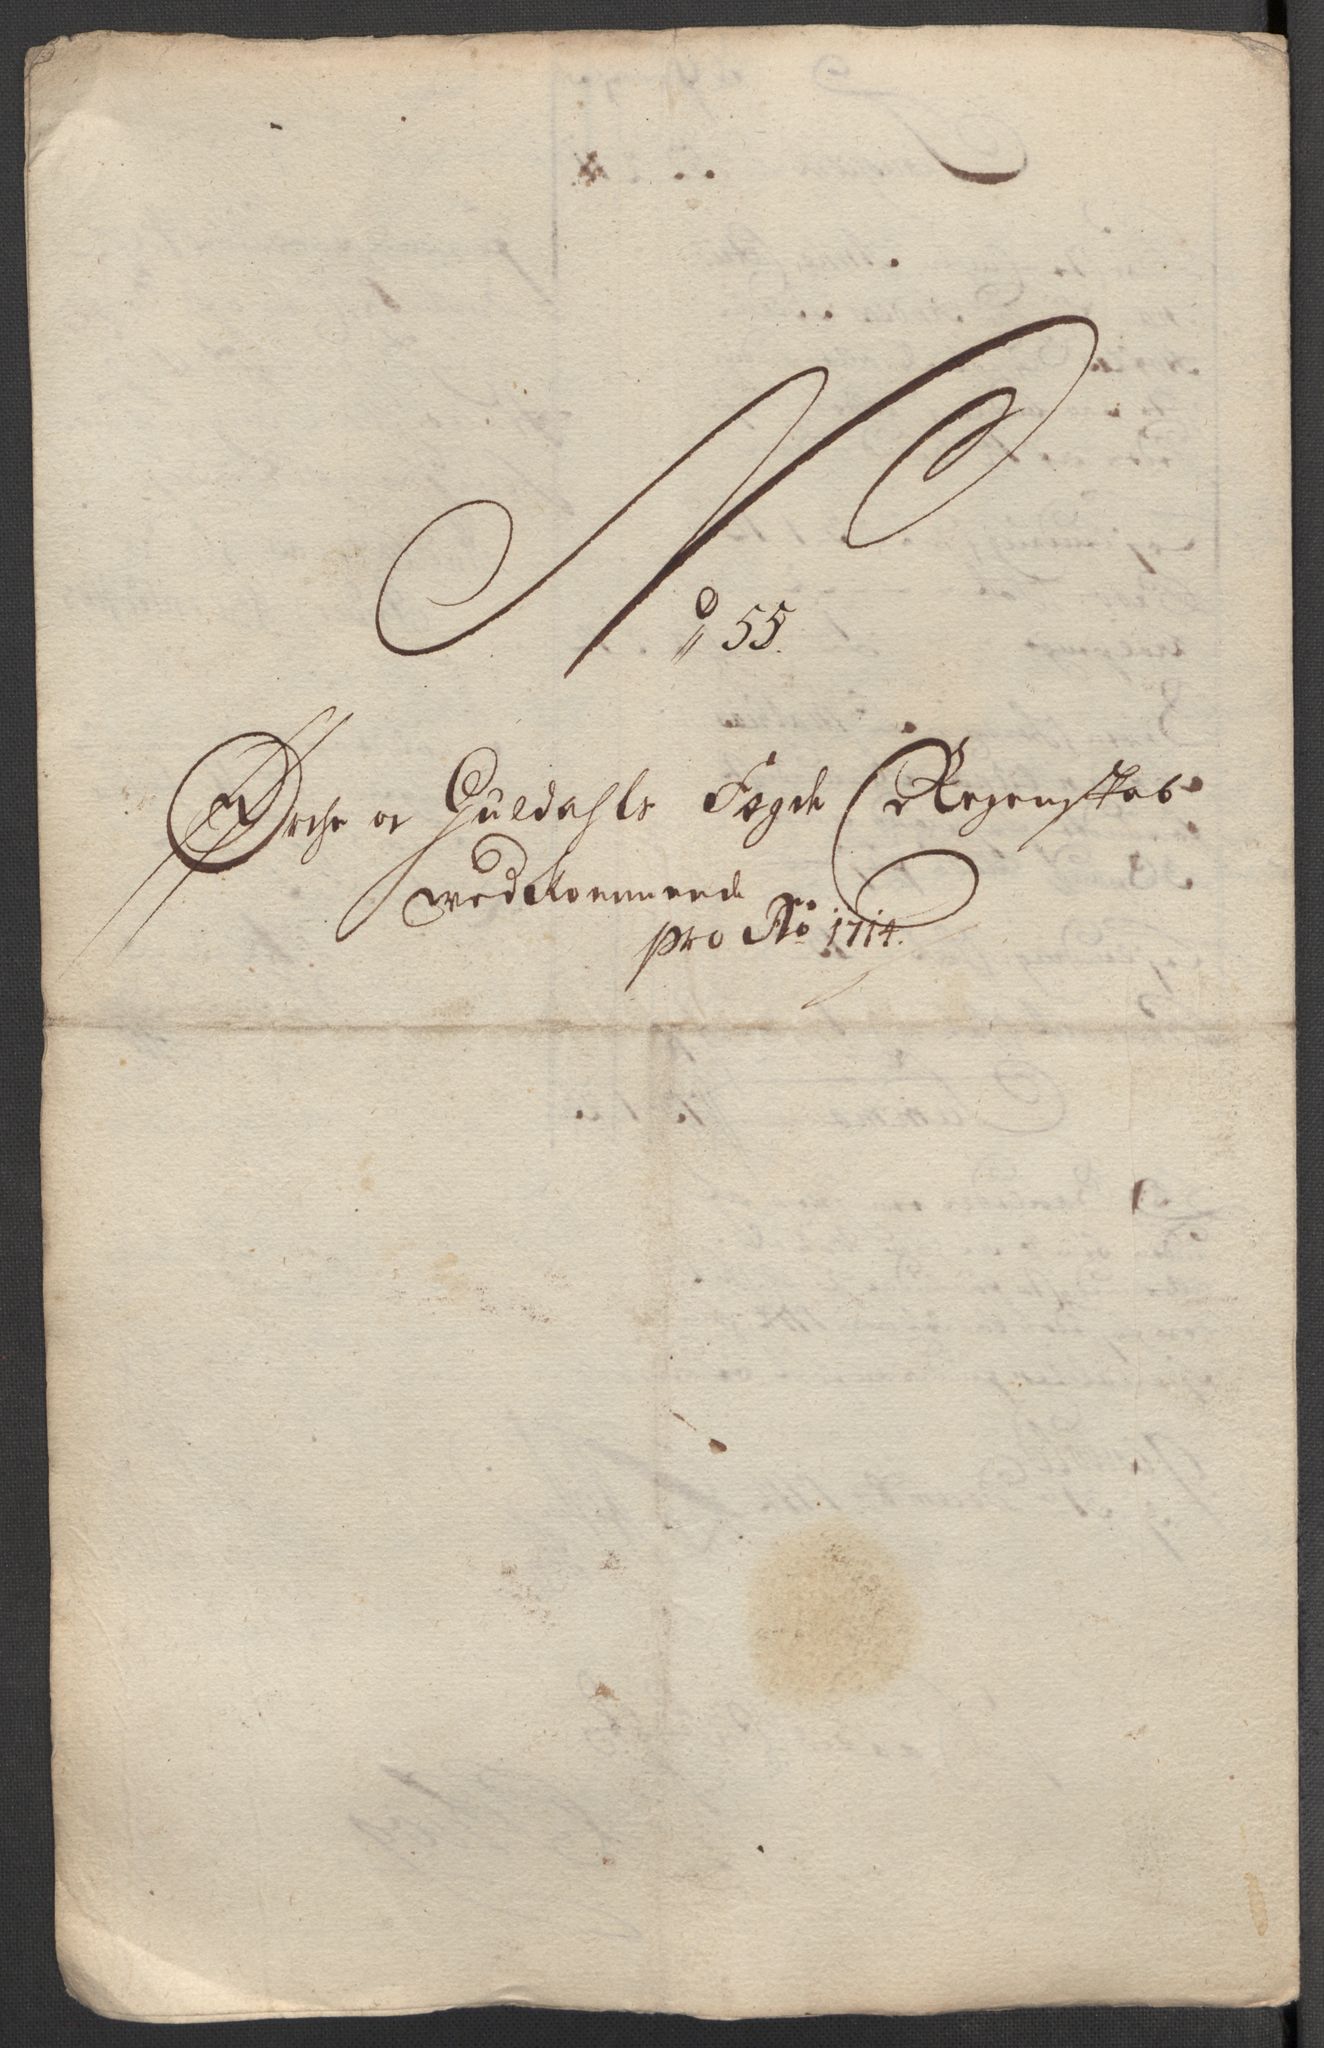 No 55.
Ørche oc Guldahls Fogde Regenskab
vedkommende
pro Ao 1714.